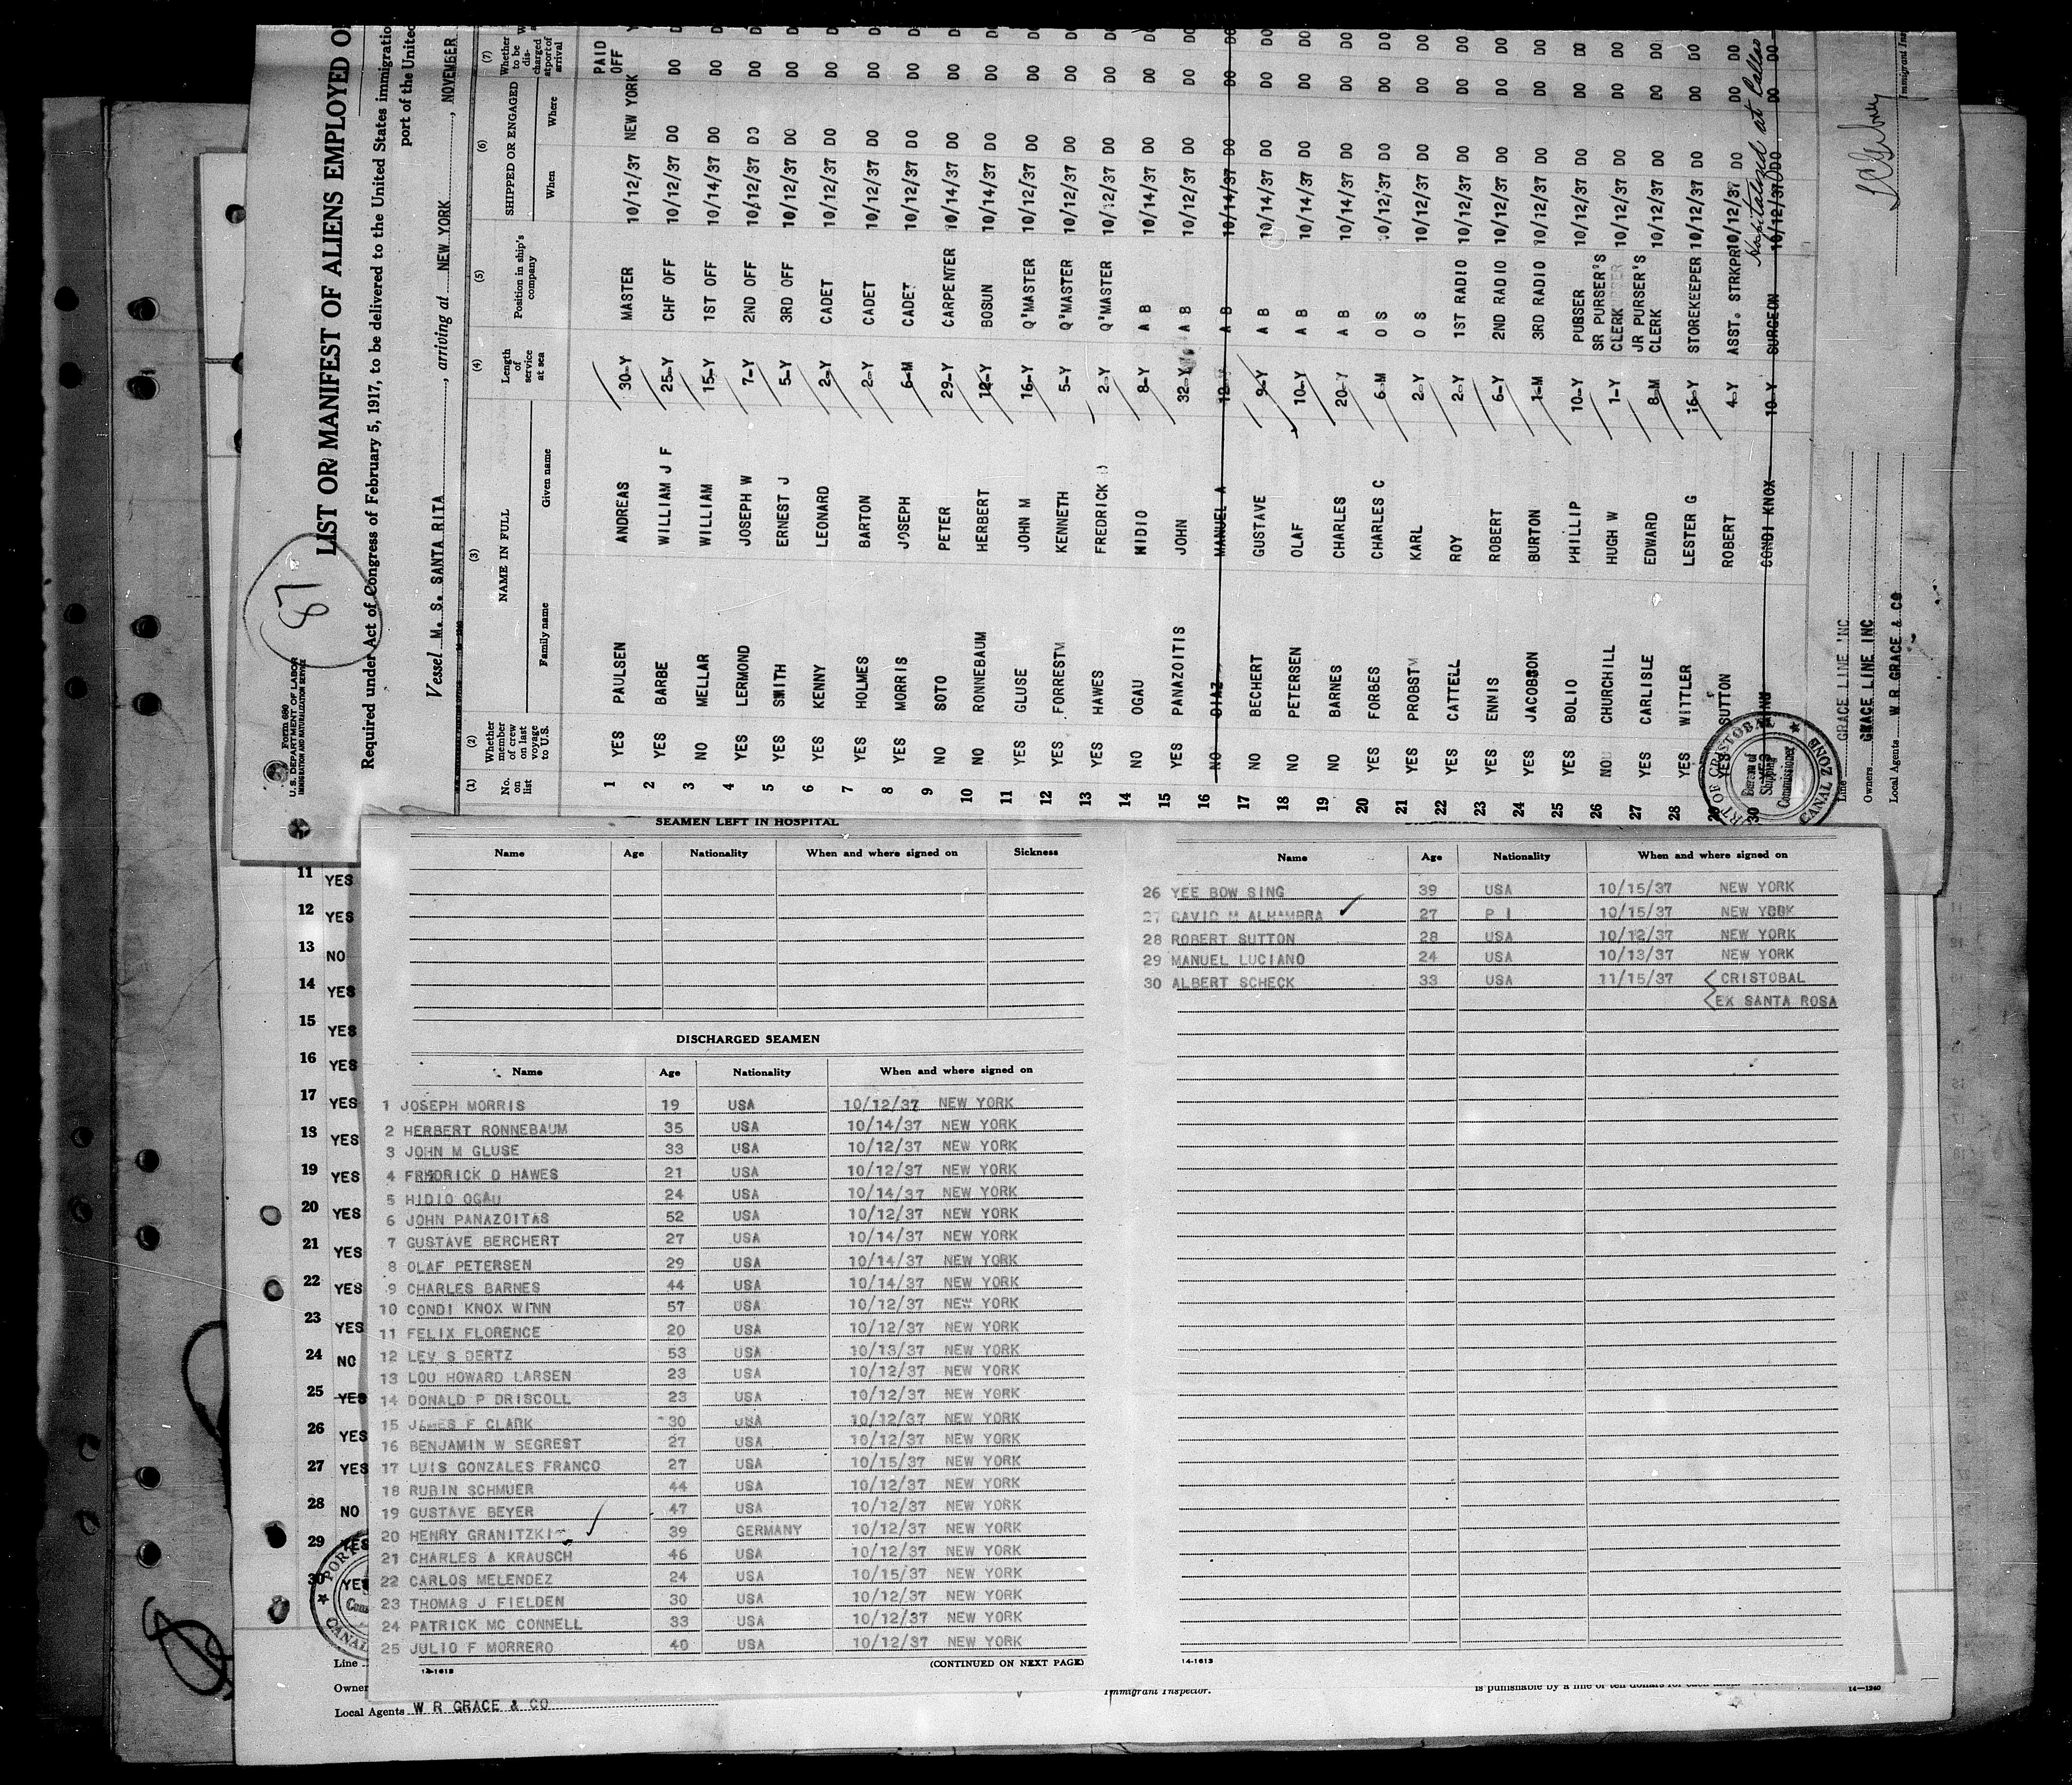 Form 680
U. S. DEPARTMENT OF LABOR
IMMIGRATION AND NATURALIZATION SERVICE
87
LIST OR MANIFEST OF ALIENS EMPLOYED O
Required under Act of Congress of February 5, 1917, to be delivered to the United States immigratio
port of the United
Vessel M. S. SANTA RITA, arriving at NEW YORK, NOVEMBER
(1) (2) (3) (4) (5) (6) (7)
No. on list
Whether member of crew on last voyage to U.S.
NAME IN FULL
Family name Given name
Length of service at sea
Position in ship's company
SHIPPED OR ENGAGED
When Where
Whether to be discharged at port of arrival
1 YES PAULSEN ANDREAS 30-Y MASTER 10/12/37 NEW YORK PAID OFF
2 YES BARBE WILLIAM J F 25-Y CHF OFF 10/12/37 DO DO
3 NO MELLAR WILLIAM 15-Y 1ST OFF 10/14/37 DO DO
4 YES LERMOND JOSEPH W 7-Y 2ND OFF 10/12/37 DO DO
5 YES SMITH ERNEST J 5-Y 3RD OFF 10/12/37 DO DO
6 YES KENNY LEONARD 2-Y CADET 10/12/37 DO DO
7 YES HOLMES BARTON 2-Y CADET 10/12/37 DO DO
8 YES MORRIS JOSEPH 6-M CADET 10/12/37 DO DO
9 NO SOTO PETER 29-Y CARPENTER 10/14/37 DO DO
10 NO RONNEBAUM HERBERT 12-Y BOSUN 10/14/37 DO DO
11 YES GLUSE JOHN M 16-Y Q'MASTER 10/12/37 DO DO
12 YES FORRESTM KENNETH 5-Y Q'MASTER 10/12/37 DO DO
13 YES HAWES FREDRICK D 2-Y Q'MASTER 10/12/37 DO DO
14 NO OGAU HIDIO 8-Y A B 10/14/37 DO DO
15 YES PANAZOITIS JOHN 32-Y A B 10/12/37 DO DO
16 NO DIAZ MANUEL A 12-Y A B 10/14/37 DO DO
17 NO BECHERT GUSTAVE 9-Y A B 10/14/37 DO DO
18 NO PETERSEN OLAF 10-Y A B 10/14/37 DO DO
19 NO BARNES CHARLES 20-Y A B 10/14/37 DO DO
20 YES FORBES CHARLES C 6-M O S 10/12/37 DO DO
21 YES PROBSTM KARL 2-Y O S 10/12/37 DO DO
22 YES CATTELL ROY 2-Y 1ST RADIO 10/12/37 DO DO
23 YES ENNIS ROBERT 6-Y 2ND RADIO 10/12/37 DO DO
24 YES JACOBSON BURTON 1-M 3RD RADIO 10/12/37 DO DO
25 YES BOLIO PHILLIP 10-Y PURSER 10/12/37 DO DO
26 NO CHURCHILL HUGH W 1-Y SR PURSER'S CLERK 10/12/37 DO DO
27 YES CARLISLE EDWARD 8-M JR PURSER'S CLERK 10/12/37 DO DO
28 YES WITTLER LESTER G 16-Y STOREKEEPER 10/12/37 DO DO
29 YES SUTTON ROBERT 4-Y ASST. STRKPR 10/12/37 DO DO
Hospitalized at Callao
30 YES WINN CONDI KNOX 10-Y SURGEON 10/12/37 DO DO
PORT OF CRISTOBAL
Bureau of Shipping Commissioner
CANAL ZONE
Line GRACE LINE INC.
Owners GRACE LINE INC
Local Agents W R GRACE & CO
Immigrant Ins
SEAMEN LEFT IN HOSPITAL
Name Age Nationality When and where signed on Sickness
DISCHARGED SEAMEN
Name Age Nationality When and where signed on
1 JOSEPH MORRIS 19 USA 10/12/37 NEW YORK
2 HERBERT RONNEBAUM 35 USA 10/14/37 NEW YORK
3 JOHN M GLUSE 33 USA 10/12/37 NEW YORK
4 FREDRICK D HAWES 21 USA 10/12/37 NEW YORK
5 HIDIO OGAU 24 USA 10/14/37 NEW YORK
6 JOHN PANAZOITAS 52 USA 10/12/37 NEW YORK
7 GUSTAVE BERCHERT 27 USA 10/14/37 NEW YORK
8 OLAF PETERSEN 29 USA 10/14/37 NEW YORK
9 CHARLES BARNES 44 USA 10/14/37 NEW YORK
10 CONDI KNOX WINN 57 USA 10/12/37 NEW YORK
11 FELIX FLORENCE 20 USA 10/12/37 NEW YORK
12 LEV S DERTZ 53 USA 10/13/37 NEW YORK
13 LOU HOWARD LARSEN 23 USA 10/12/37 NEW YORK
14 DONALD P DRISCOLL 23 USA 10/12/37 NEW YORK
15 JAMES F CLARK 30 USA 10/12/37 NEW YORK
16 BENJAMIN W SEGREST 27 USA 10/12/37 NEW YORK
17 LUIS GONZALES FRANCO 27 USA 10/15/37 NEW YORK
18 RUBIN SCHMUER 44 USA 10/12/37 NEW YORK
19 GUSTAVE BEYER 47 USA 10/12/37 NEW YORK
20 HENRY GRANITZKI 39 GERMANY 10/12/37 NEW YORK
21 CHARLES A KRAUSCH 46 USA 10/12/37 NEW YORK
22 CARLOS MELENDEZ 24 USA 10/15/37 NEW YORK
23 THOMAS J FIELDEN 30 USA 10/12/37 NEW YORK
24 PATRICK MC CONNELL 33 USA 10/12/37 NEW YORK
25 JULIO F MORRERO 40 USA 10/12/37 NEW YORK
14-1613 (CONTINUED ON NEXT PAGE)
Name Age Nationality When and where signed on
26 YEE BOW SING 39 USA 10/15/37 NEW YORK
27 DAVID M ALHAMBRA 27 P I 10/15/37 NEW YORK
28 ROBERT SUTTON 28 USA 10/12/37 NEW YORK
29 MANUEL LUCIANO 24 USA 10/13/37 NEW YORK
30 ALBERT SCHECK 33 USA 11/15/37 CRISTOBAL
EX SANTA ROSA
14-1613
11 YES
12 YES
13 NO
14 YES
15 YES
16 YES
17 YES
18 YES
19 YES
20 YES
21 YES
22 YES
23 YES
24 NO
25 YES
26 YES
27 YES
28 NO
29 YES
30 YES
PORT
CANAL
Line
Owner
Local Agents W R GRACE & CO
Immigrant Inspector.
is punishable by a fine of ten dollars for each alien
14-1240